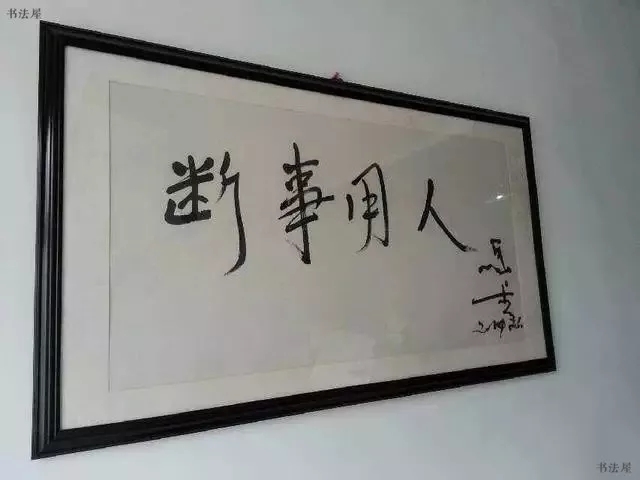 书法屋
断事用人
书法屋